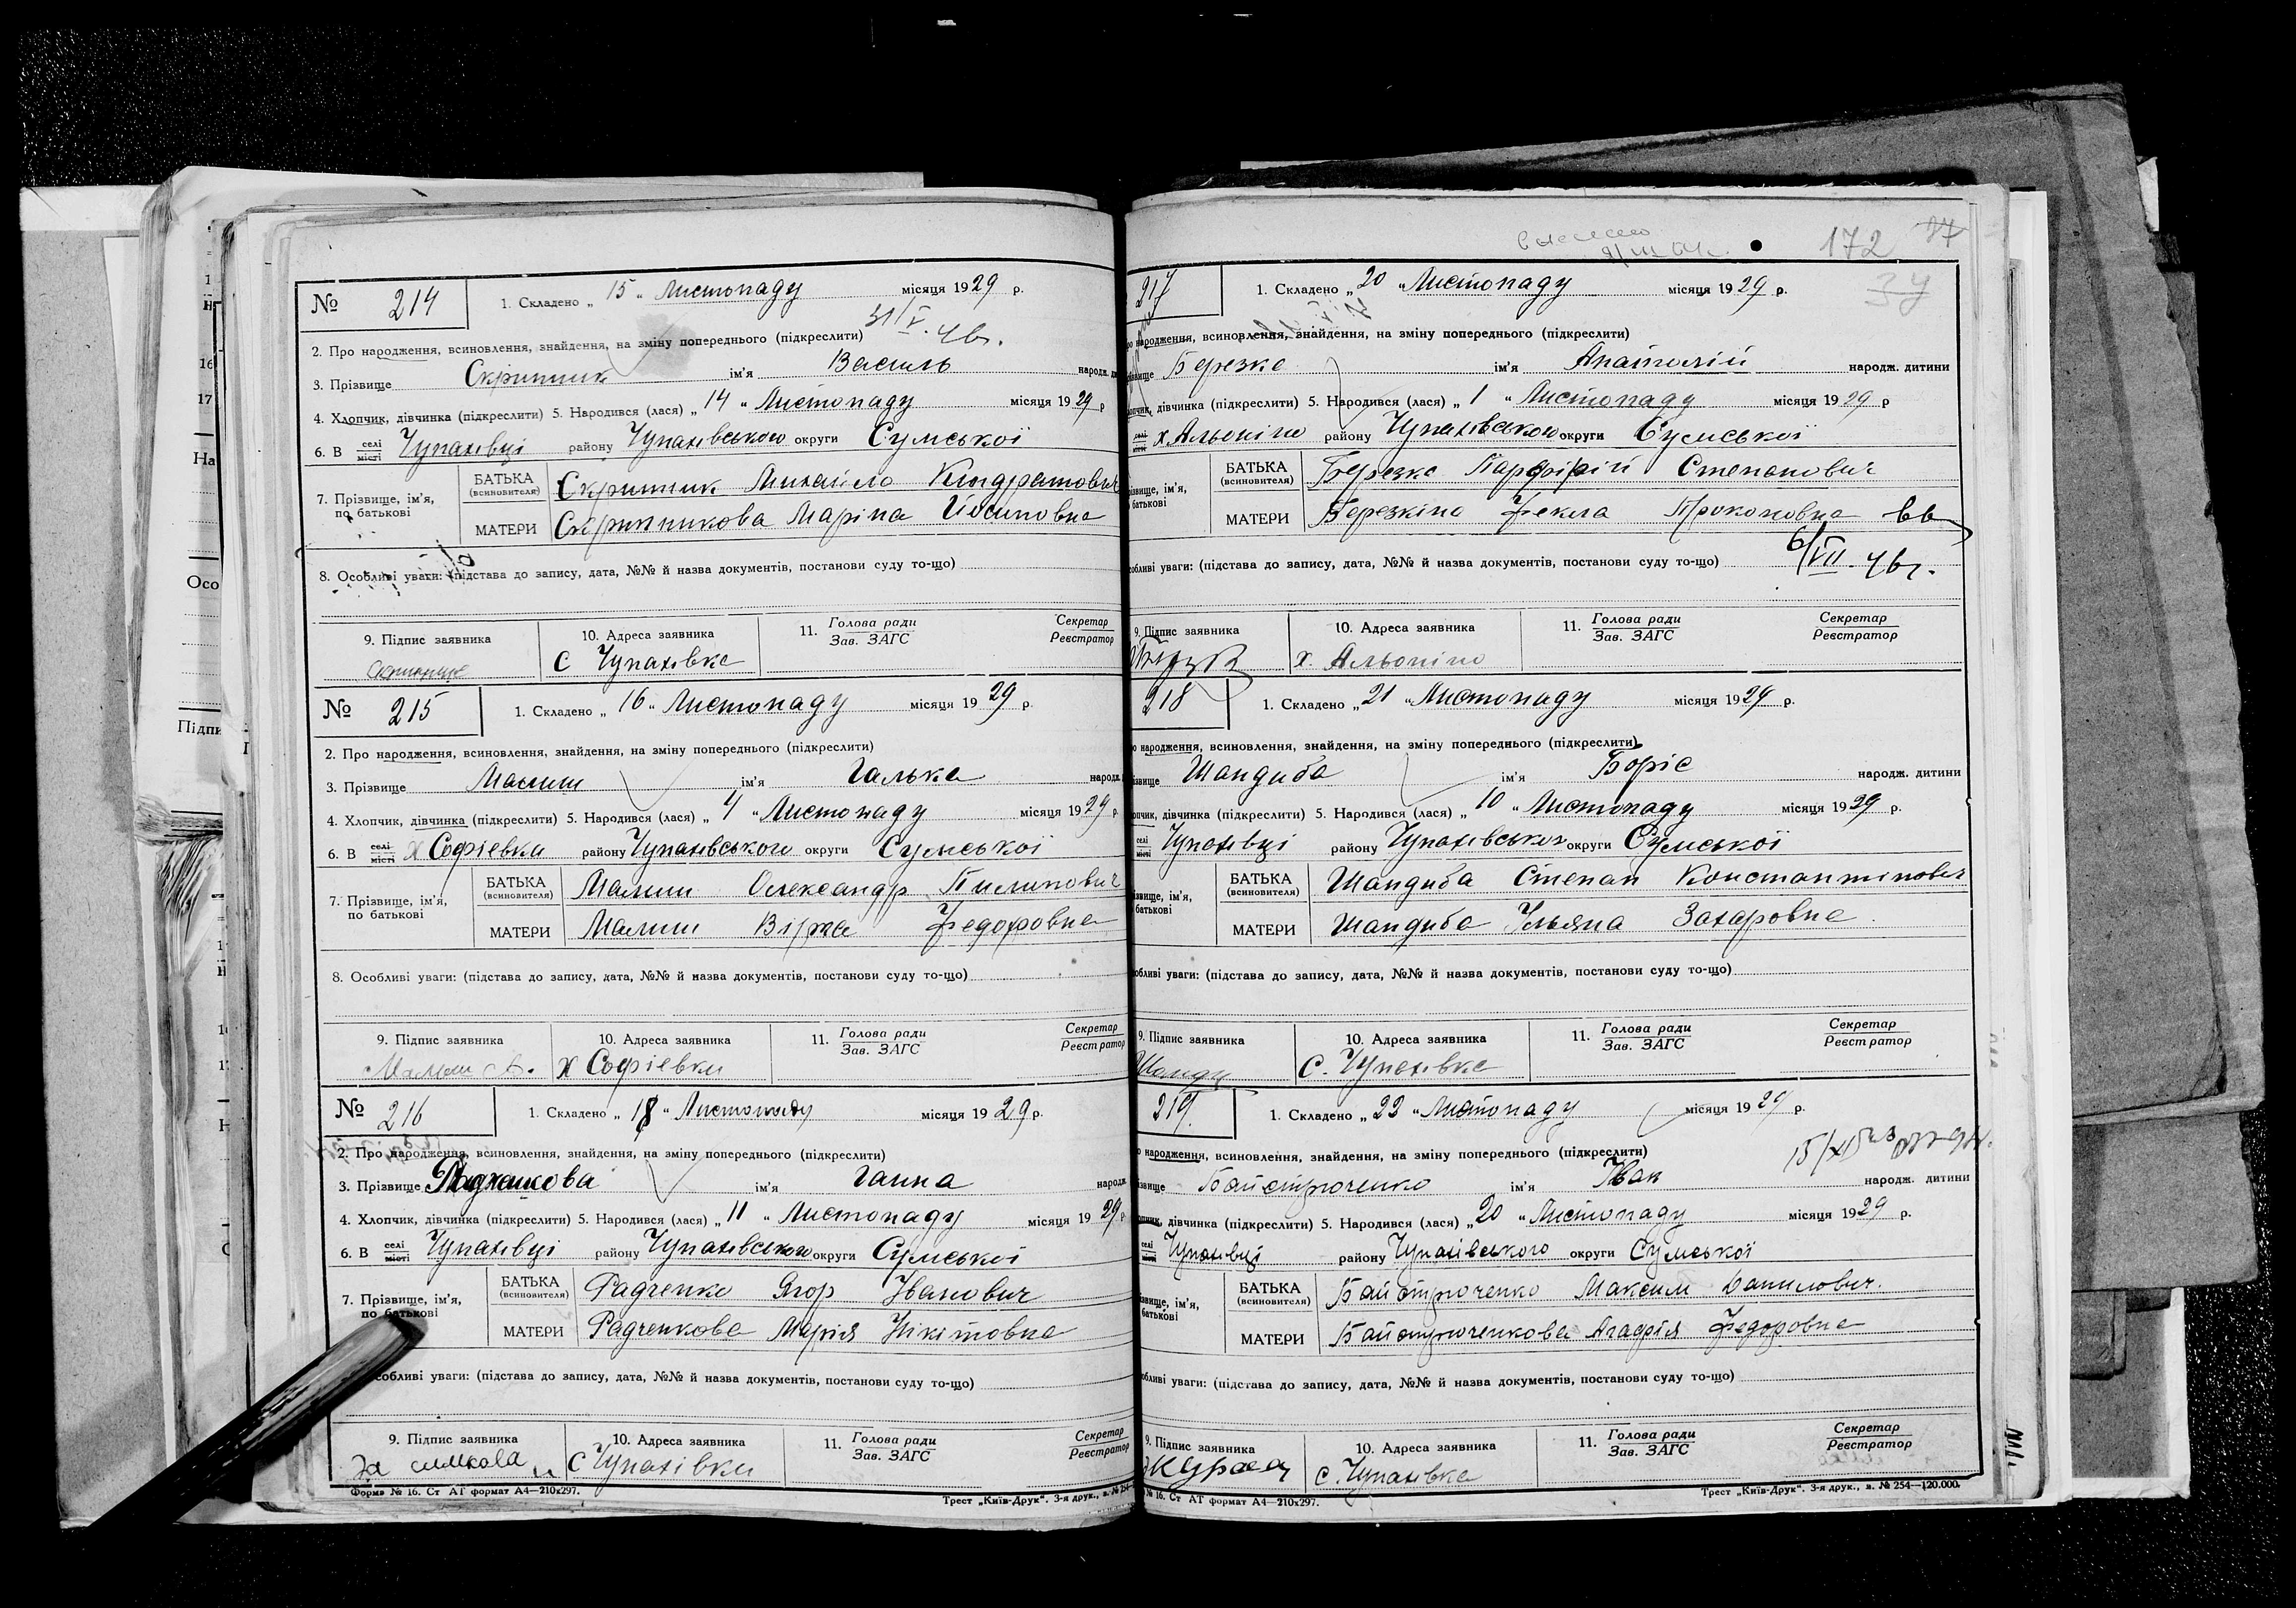 172 37
34
№ 214
1. Складено „ 15 " Листопаду місяця 1929 р.
31/V. 46.
2. Про народження, всиновлення, знайдення, на зміну попереднього (підкреслити)
3. Прізвище Скрипник ім'я Василь народж.
4. Хлопчик, дівчинка (підкреслити) 5. Народився (лася) „ 14 " Листопаду місяця 1929 р
6. В селі місті Чупахівці району Чупахівського округи Сумської
7. Прізвище, ім'я, по батькові
БАТЬКА (всиновителя) Скрипник Михайло Кіндратович
МАТЕРИ Скрипникова Марина Йосиповна
8. Особливі уваги: (підстава до запису, дата, №№ й назва документів, постанови суду то-що)
9. Підпис заявника
10. Адреса заявника с Чупахівка
11. Голова ради Зав. ЗАГС
Секретар Реєстратор
№ 215
1. Складено „ 16 " Листопаду місяця 1929 р.
2. Про народження, всиновлення, знайдення, на зміну попереднього (підкреслити)
3. Прізвище Малиш ім'я Галька народж.
4. Хлопчик, дівчинка (підкреслити) 5. Народився (лася) „ 4 " Листопаду місяця 1929 р
6. В селі місті х Софіевки району Чупахівського округи Сумської
7. Прізвище, ім'я, по батькові
БАТЬКА (всиновителя) Малиш Олександр Пилипович
МАТЕРИ Малиш Вірка Федоровна
8. Особливі уваги: (підстава до запису, дата, №№ й назва документів, постанови суду то-що)
9. Підпис заявника Малыш А.
10. Адреса заявника х Софіевки
11. Голова ради Зав. ЗАГС
Секретар Реєстратор
№ 216
1. Складено „ 18 " Листопаду місяця 1929 р.
2. Про народження, всиновлення, знайдення, на зміну попереднього (підкреслити)
3. Прізвище ім'я Ганна народж.
4. Хлопчик, дівчинка (підкреслити) 5. Народився (лася) „ 11 " Листопаду місяця 1929 р
6. В селі місті Чупахівці району Чупахівського округи Сумської
7. Прізвище, ім'я, по батькові
БАТЬКА (всиновителя) Радченко Ягор Іванович
МАТЕРИ Радченкова Марія Нікітовна
особливі уваги: (підстава до запису, дата, №№ й назва документів, постанови суду то-що)
9. Підпис заявника
10. Адреса заявника с Чупахівки
11. Голова ради Зав. ЗАГС
Секретар Реєстратор
Форма № 16. Ст АТ формат А4—210х297.
Трест „Київ-Друк". 3-я друк., з. № 254
217
1. Складено „ 20 " Листопаду місяця 1929 р.
народження, всиновлення, знайдення, на зміну попереднього (підкреслити)
Березка ім'я Анатолій народж. дитини
дівчинка (підкреслити) 5. Народився (лася) „ 1 " Листопаду місяця 1929 р
селі місті х Альоніно району Чупахівського округи Сумської
ім'я, батькові
БАТЬКА (всиновителя) Березка Парфірій Степанович
МАТЕРИ Березкіна Фекла Прокоповна
6/VII. 46г.
уваги: (підстава до запису, дата, №№ й назва документів, постанови суду то-що)
9. Підпис заявника
10. Адреса заявника х. Альоніно
11. Голова ради Зав. ЗАГС
Секретар Реєстратор
218
1. Складено „ 21 " Листопаду місяця 1929 р.
народження, всиновлення, знайдення, на зміну попереднього (підкреслити)
Шандиба ім'я Боріс народж. дитини
дівчинка (підкреслити) 5. Народився (лася) „ 10 " Листопаду місяця 1929 р.
селі місті Чупахівці району Чупахівського округи Сумської
ім'я, батькові
БАТЬКА (всиновителя) Шандиба Степан Константинович
МАТЕРИ Шандиба Ульяна Захаровна
уваги: (підстава до запису, дата, №№ й назва документів, постанови суду то-що)
9. Підпис заявника
10. Адреса заявника с. Чупахівка
11. Голова ради Зав. ЗАГС
Секретар Реєстратор
219.
1. Складено „ 22 " Листопаду місяця 1929 р.
народження, всиновлення, знайдення, на зміну попереднього (підкреслити)
Байстрюченко ім'я Іван народж. дитини
дівчинка (підкреслити) 5. Народився (лася) „ 20 " Листопаду місяця 1929 р.
селі місті Чупахівці району Чупахівського округи Сумської
ім'я, батькові
БАТЬКА (всиновителя) Байстрюченко Максим Данилович.
МАТЕРИ Байстрюченкова Агафія Федоровна
уваги: (підстава до запису, дата, №№ й назва документів, постанови суду то-що)
9. Підпис заявника
10. Адреса заявника с. Чупахівка
11. Голова ради Зав. ЗАГС
Секретар Реєстратор
№ 16. Ст АТ формат А4—210х297.
Трест „Київ-Друк". 3-я друк., з. № 254—120.000.